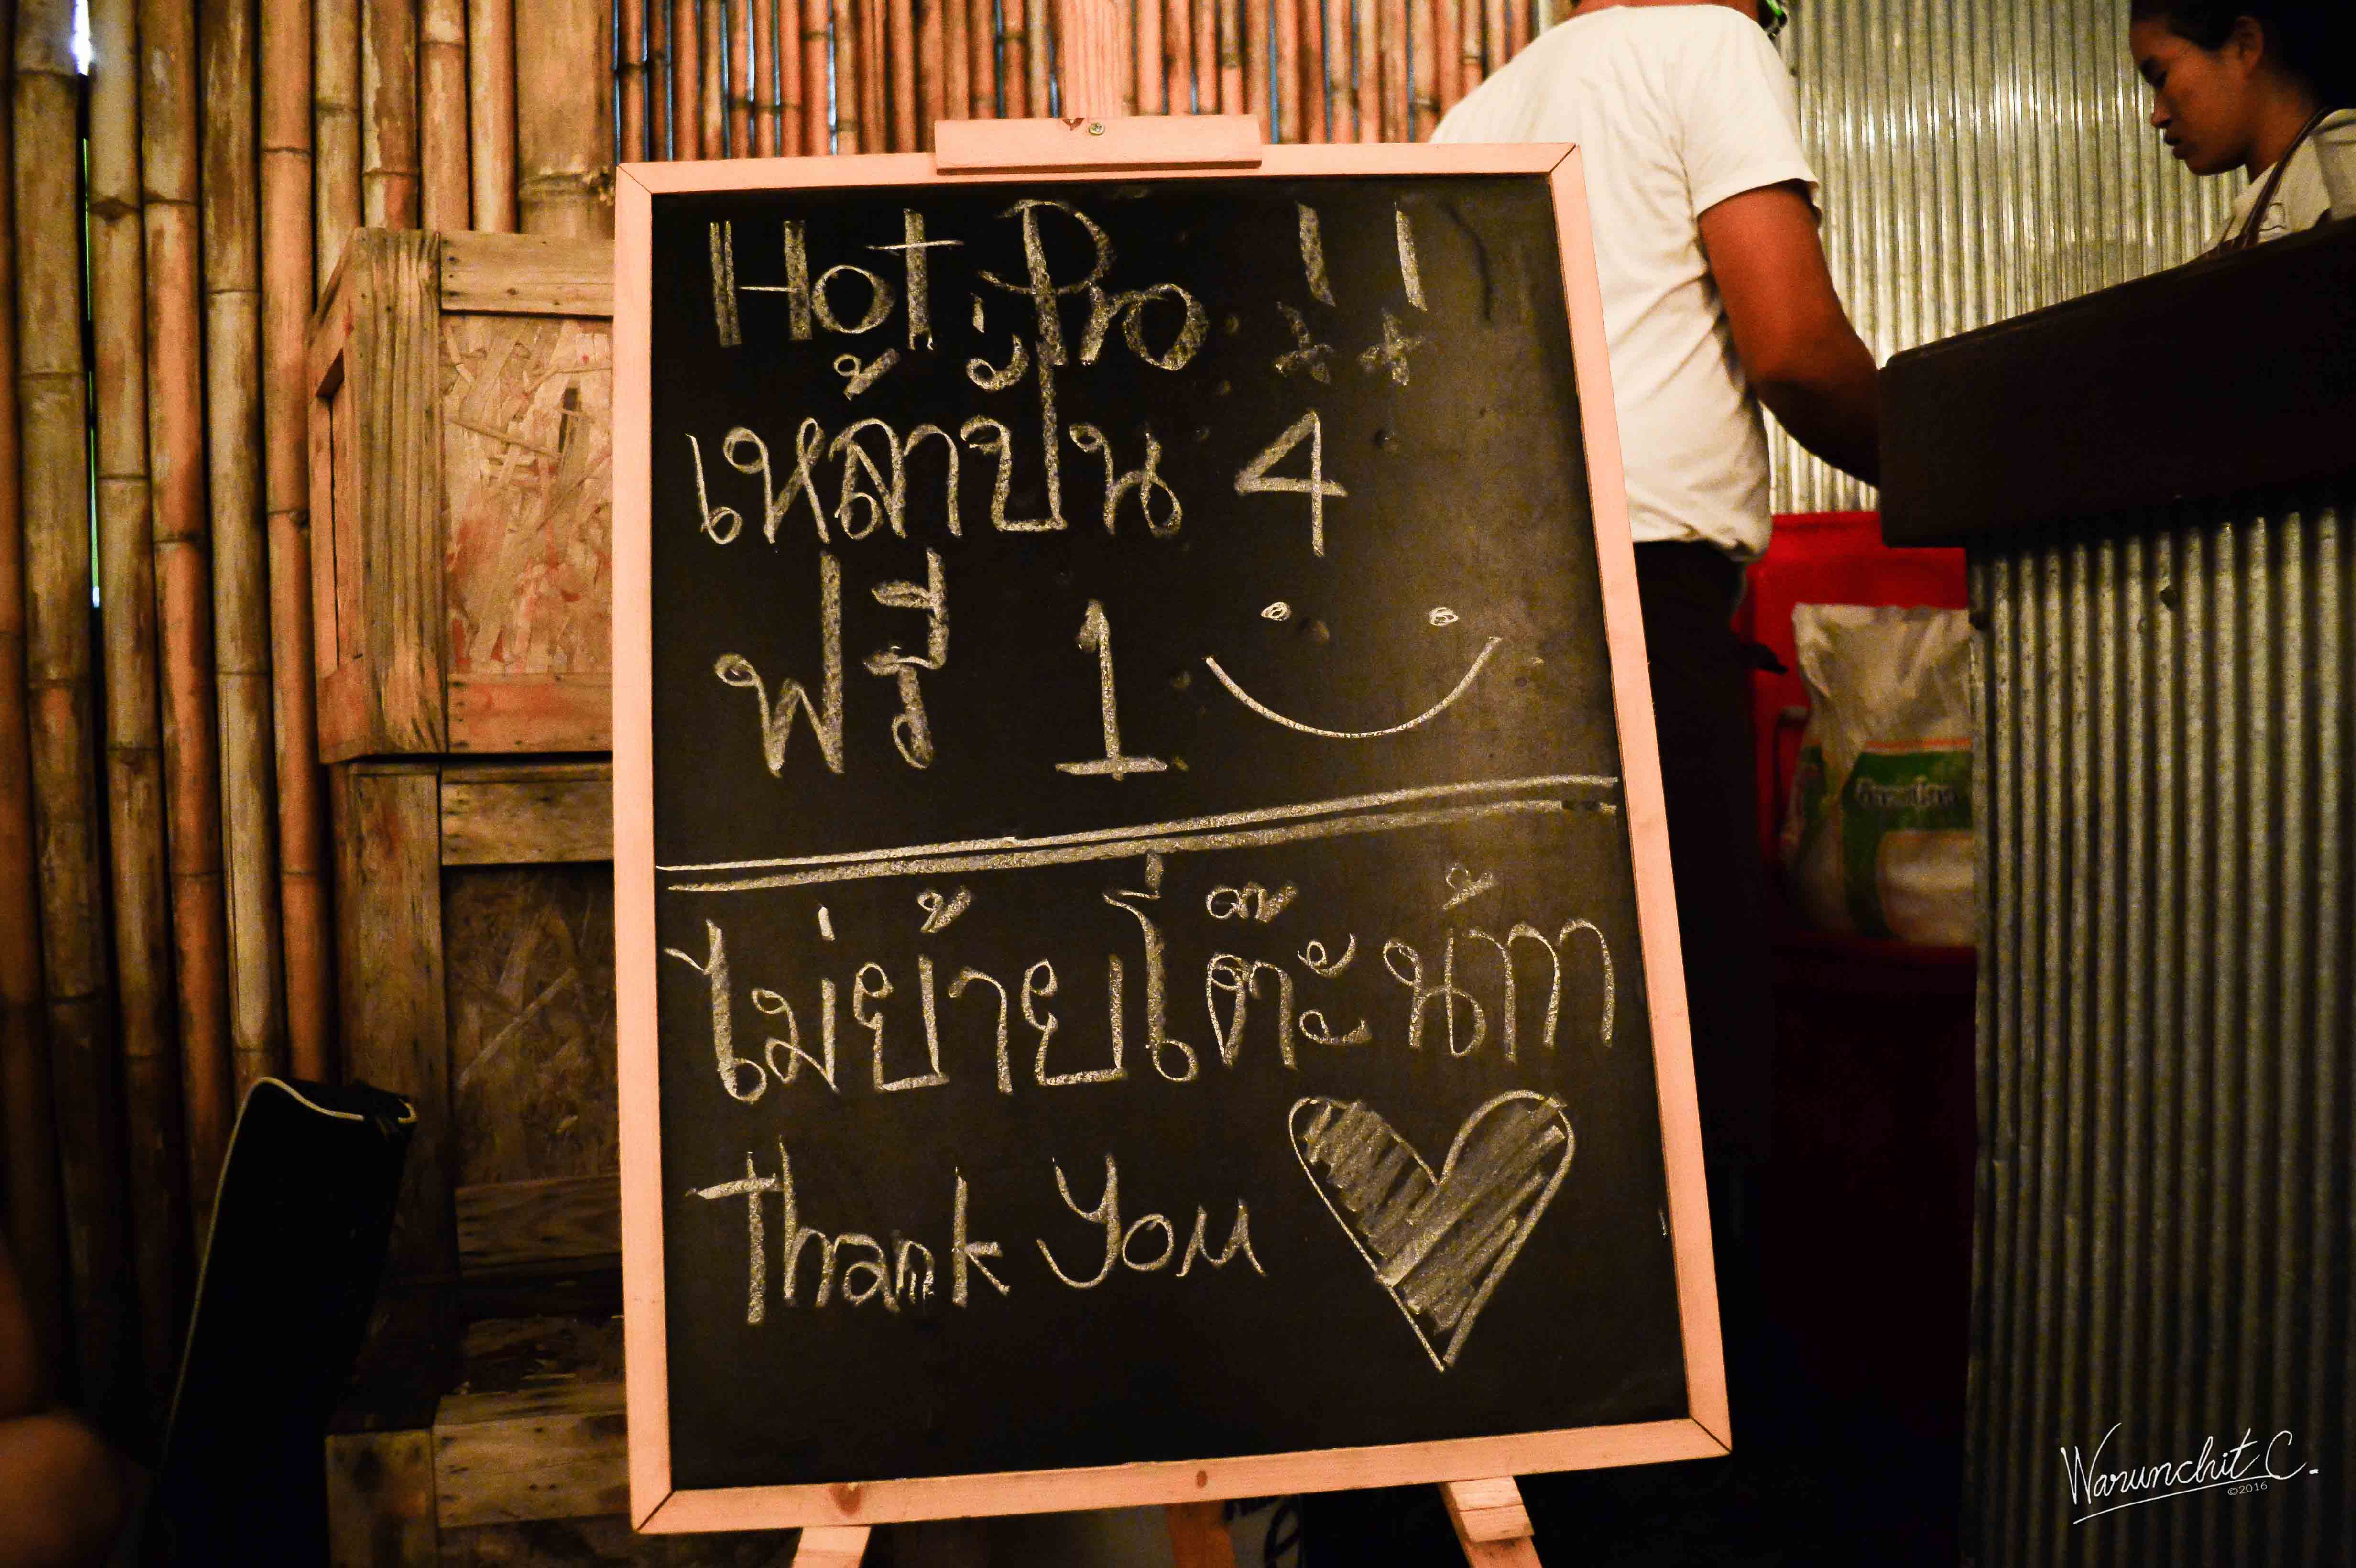 Hot Pro !!
เหล้าปั่น 4
ฟรี 1
ไม่ย้ายโต๊ะน้าาา
Thank You
Warunchit C.
©2016